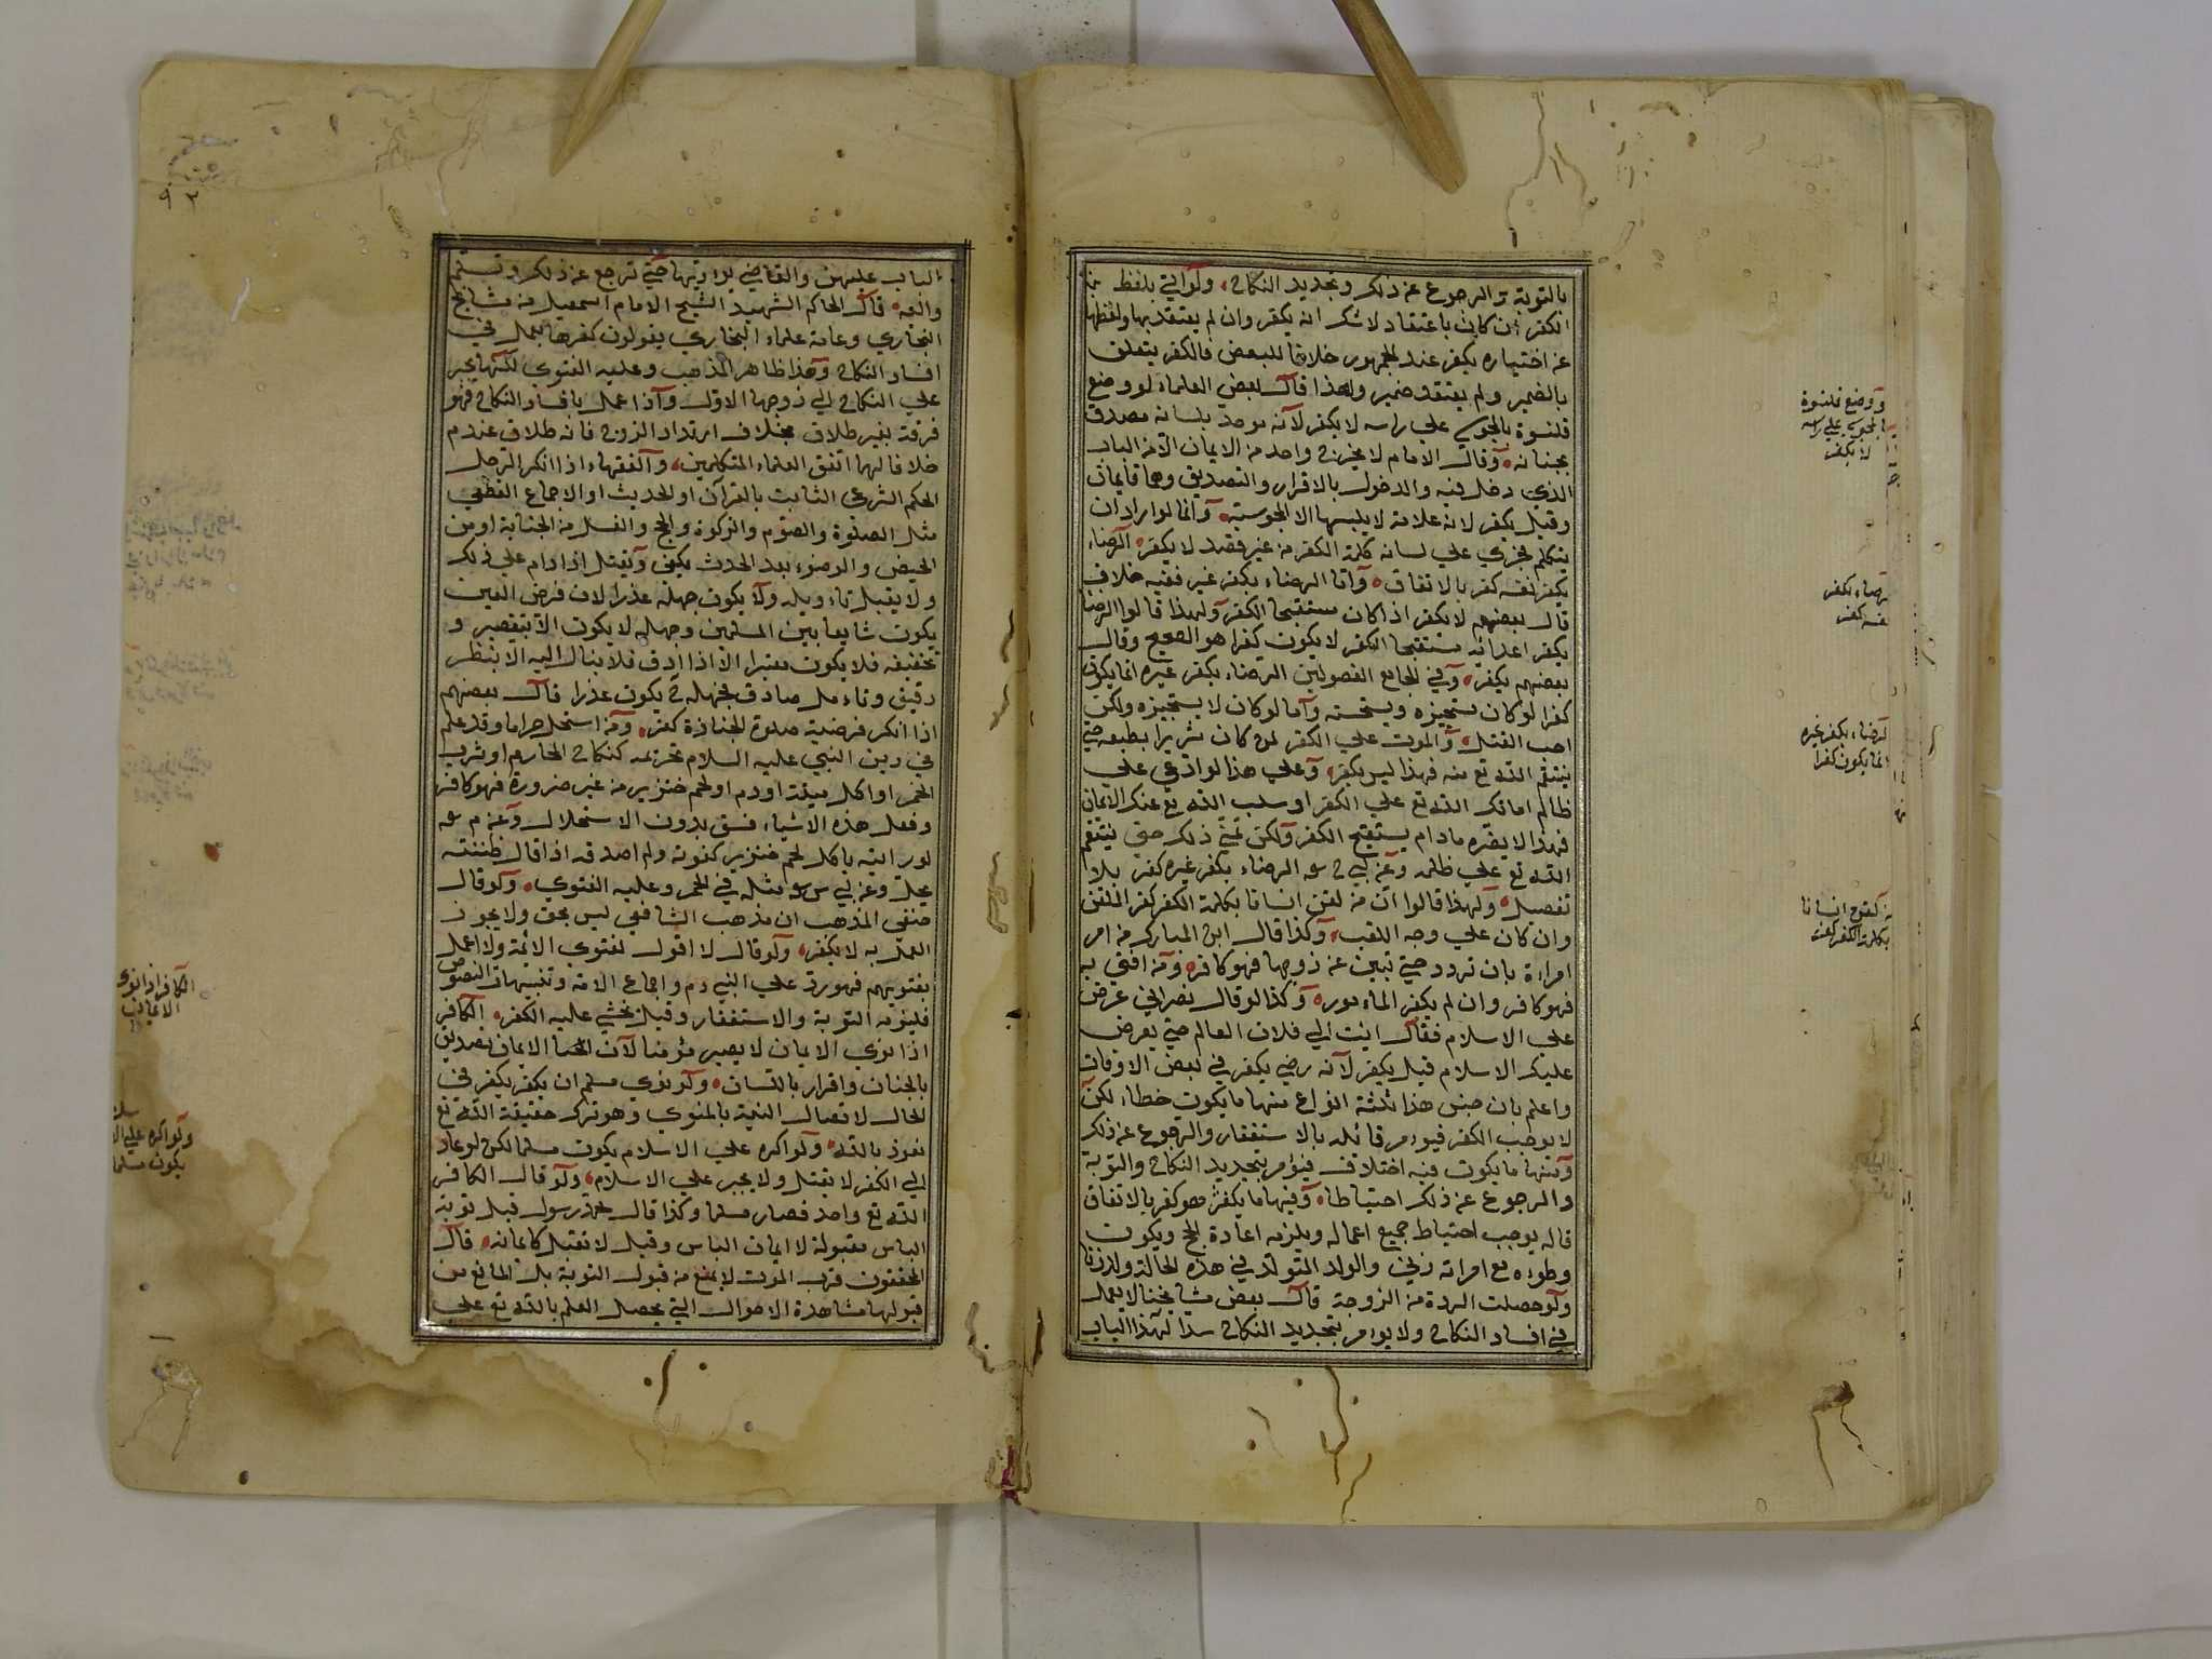 بالتوبة والرجوع عن ذلك وتجديد النكاح ولو اتي بلفظ
الكفر ان كان باعتقاد لا شك انه يكفر وان لم يعتقد بها ولفظها
عن اختياره يكفر عند الجمهور خلافا للبعض فالكفر يتعلق
بالضمير ولم يعتقد ضمير ولهذا قال بعض العلماء لو وضع
قلنسوة بالمجوسي علي راسه لا يكفر لانه موحد بلسانه مصدق
بجنانه وقال الامام لا يخرج واحد من الايمان الا من الباب
الذي دخل فيه والدخول بالاقرار والتصديق وهما قايمان
وقيل يكفر لانه علامة لا يلبسها الا المجوسية وانما لو اراد ان
يتكلم فجري علي لسانه كلمة الكفر من غير قصد لا يكفر الرضاء
يكفر نفسه كفر بالاتفاق واما الرضاء بكفر غيره ففيه خلاف
قال بعضهم لا يكفر اذا كان مستقبحا الكفر ولهذا قالوا الرضا
بكفر اعدائه مستقبحا الكفر لا يكون كفرا هو الصحيح وقال
بعضهم يكفر وفي الجامع الفصولين الرضاء بكفر غيره انما يكون
كفرا لو كان يستجيزه ويستحسنه واما لو كان لا يستجيزه ولكن
احب القتل والموت علي الكفر لمن كان شريرا بطبعه حتي
ينتقم الله تع منه فهذا ليس بكفر وعلي هذا لو ادعي علي
ظالم اماتك الله تع علي الكفر او سلب الله تع عنك الايمان
فهذا لا يضره مادام يستقبح الكفر ولكن تمني ذلك حتي ينتقم
الله تع علي ظلمه وعن ابي ح سه الرضاء بكفر غيره كفر بلا
تفصيل ولهذا قالوا ان من لقن انسانا بكلمة الكفر كفر الملقن
وان كان علي وجه اللعب وكذا قال ابن المبارك من امر
امراة بان ترد حتي تبين عن زوجها فهو كافر ومن افتي به
فهو كافر وان لم يكفر الماءمورة وكذا لو قال نصراني عرض
علي الاسلام فقال ايت الي فلان العالم حتي يعرض
عليك الاسلام قيل يكفر لانه رضي بكفر في بعض الاوقات
واعلم بان جنس هذا ثلثة انواع منها ما يكون خطاء لكن
لا يوجب الكفر فيؤمر قائله بالاستغفار والرجوع عن ذلك
ومنها ما يكون فيه اختلاف فيؤمر بتجديد النكاح والتوبة
والرجوع عن ذلك احتياطا وفيها ما يكفر هو كفر بالاتفاق
قاله يوجب احتياط جميع اعماله ويلزمه اعادة الحج ويكون
وطوءه مع امراته زني والولد المتولد في هذه الحالة ولد زنا
ولو حصلت الردة من الزوجة قال بعض مشايخنا لا يعمل
في افساد النكاح ولا يوءمر بتجديد النكاح سدا لهذا الباب
ووضع قلنسوة
المجوسي علي راسه
لا يكفر
رضاء بكفر
نفسه كفر
الرضاء بكفر غيره
انما يكون كفرا
من لقن انسانا
بكلمة الكفر كفر
٩٣
الباب عليهن والقاضي يوءدبها حتي ترجع عن ذلك وتسلم
والفه قال الحاكم الشهيد الشيخ الامام اسمعيل من مشايخ
البخاري وعامة علماء البخاري يقولون كفرها يعمل في
افساد النكاح وهذا ظاهر المذهب وعليه الفتوي لكنها يجبر
علي النكاح الي زوجها الاول واذا عمل بافساد النكاح فهو
فرقة بغير طلاق بخلاف ارتداد الزوج فانه طلاق عند م
خلافا لهما اتفق العلماء المتكلمين والفقهاء اذا انكر الرجل
الحكم الشرعي الثابت بالقرآن او الحديث او الاجماع القطعي
مثل الصلوة والصوم والزكوة والحج والغسل من الجنابة او من
الحيض والوضوء بعد الحدث يكفر ويقتل اذا دام علي ذلك
ولا يقبل تاءويله ولا يكون جهله عذرا لان فرض العين
يكون شايعا بين المسلمين وجهله لا يكون الا بتقصير و
تخفيفه فلا يكون معتبرا الا اذا ادق فلا ينال اليه الا بنظر
دقيق وتاءمل صادق فجهله ح يكون عذرا قال بعضهم
اذا انكر فرضية صلوة الجنازة كفر ومن استحل حراما وقد علم
في دين النبي عليه السلام تحريمه كنكاح المحارم او شرب
الخمر او اكل ميتة او دم او لحم خنزير من غير ضرورة فهو كافر
وفعل هذه الاشياء فسق بدون الاستحلال وعن م سه
لو رايته ياكل لحم خنزير كفرته ولم اصدقه اذا قال ظننته
يحل وعن ابي س سه مثله في الخمر وعليه الفتوي ولو قال
حنفي المذهب ان مذهب الشافعي ليس بحق ولا يجوز
العمل به لا يكفر ولو قال لا اقول لفتوي الائمة ولا اعمل
بفتويهم فهو رد علي النبي دم واجماع الامة وتنبيهات النصوص
فليزمه التوبة والاستغفار وقيل يخشي عليه الكفر الكافر
اذا نوي الايمان لا يصير مؤمنا لان الايمان تصديق
بالجنان واقرار باللسان ولو نوي مسلم ان يكفر يكفر في
الحال لاتصال النية بالمنوي وهو ترك حقيقة الله تع
نعوذ بالله ولو اكره علي الاسلام يكون مسلما لكن لو عاد
الي الكفر لا يقتل ولا يجبر علي الاسلام ولو قال الكافر
الله تع واحد فصار مسلما وكذا قال محمد رسول قبل توبة
الياس مقبولة لا ايمان الياس وقيل لا تقبل كايمانه قال
المحققون قرب الموت لا يمنع من قبول التوبة بل المانع من
قبولها مشاهدة الاحوال التي يحصل العلم بالله تع علي
الكافر اذا نوي
الايمان
ولو اكره علي
يكون مسلما